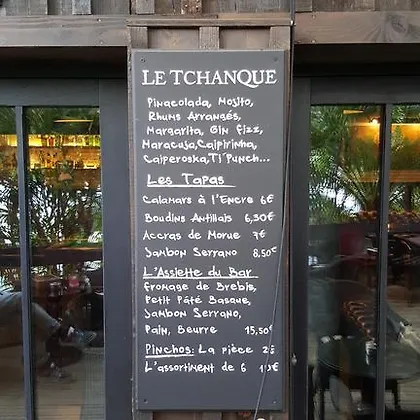 LE TCHANQUE
Pinacolada, Mojito,
Rhums Arrangés,
Margarita, Gin Fizz,
Maracuja, Caipirinha,
Caiperoska, Ti'Punch...
Les Tapas
Calamars à l'Encre 6€
Boudins Antillais 6,30€
Accras de Morue 7€
Jambon Serrano 8.50€
L'Assiette du Bar
Fromage de Brebis,
Petit Pâté Basque,
Jambon Serrano,
Pain, Beurre 15,50€
Pinchos: La pièce 2€
L'assortiment de 6